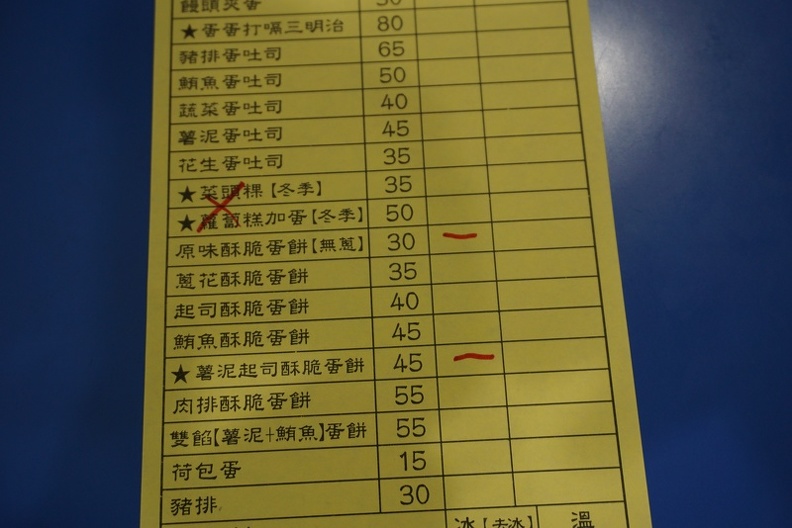 饅頭夾蛋 30
★蛋蛋打嗝三明治 80
豬排蛋吐司 65
鮪魚蛋吐司 50
蔬菜蛋吐司 40
薯泥蛋吐司 45
花生蛋吐司 35
★菜頭粿【冬季】 35
★蘿蔔糕加蛋【冬季】 50
原味酥脆蛋餅【無蔥】 30
蔥花酥脆蛋餅 35
起司酥脆蛋餅 40
鮪魚酥脆蛋餅 45
★薯泥起司酥脆蛋餅 45
肉排酥脆蛋餅 55
雙餡【薯泥+鮪魚】蛋餅 55
荷包蛋 15
豬排 30
冰【去冰】 溫